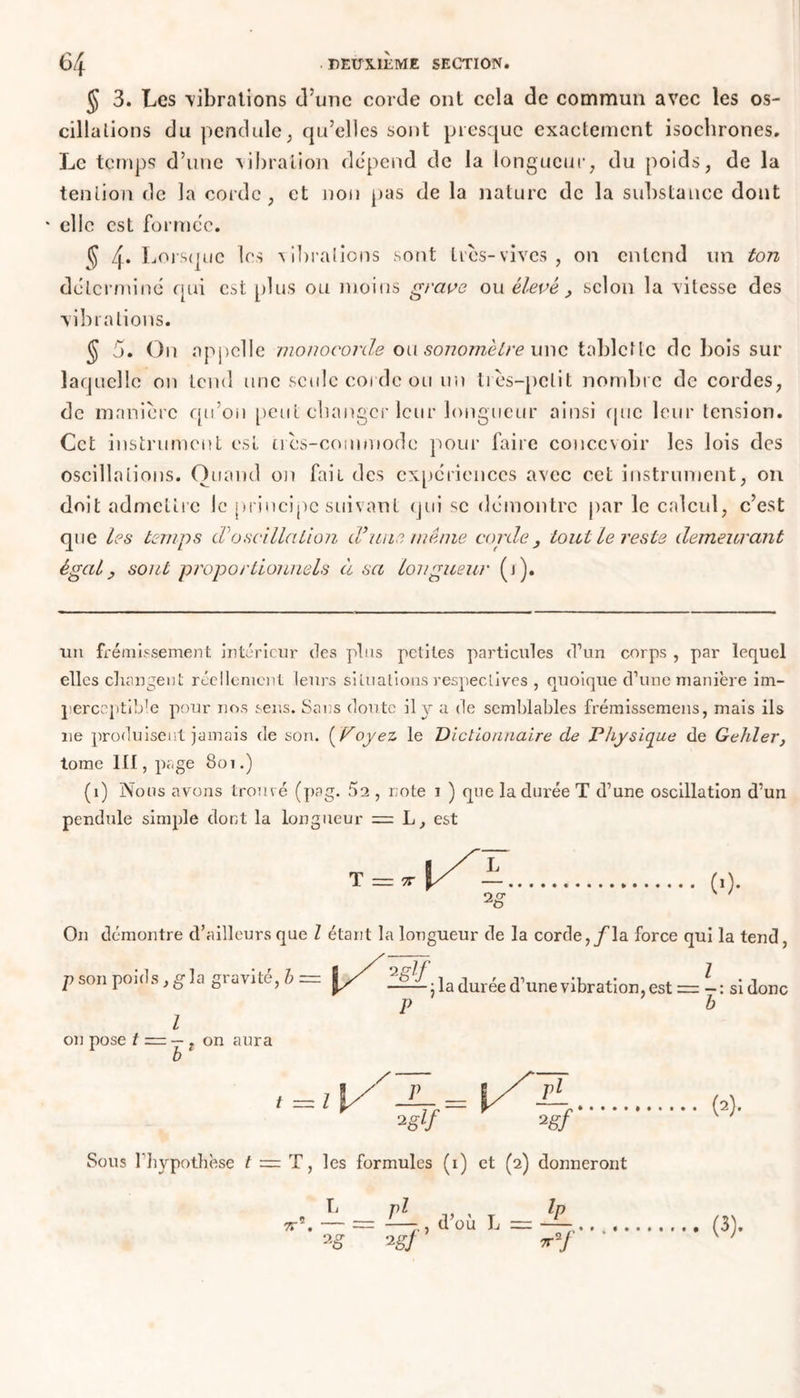 64 DEUXIÈME SECTION.
§ 3. Les vibrations d'une corde ont cela de commun avec les os-
cillations du pendule, qu'elles sont presque exactement isochrones.
Le temps d'une vibration dépend de la longueur, du poids, de la
tention de la corde, et non pas de la nature de la substance dont
elle est formée.
§ 4. Lorsque les vibrations sont très-vives, on entend un ton
déterminé qui est plus ou moins grave ou élevé, selon la vitesse des
vibrations.
§ 5. On appelle monocorde ou sonomètre une tablette de bois sur
laquelle on tend une seule corde ou un très-petit nombre de cordes,
de manière qu'on peut changer leur longueur ainsi que leur tension.
Cet instrument est très-commode pour faire concevoir les lois des
oscillations. Quand on fait des expériences avec cet instrument, on
doit admettre le principe suivant qui se démontre par le calcul, c'est
que les temps d'oscillation d'une même corde, tout le reste demeurant
égal, sont proportionnels à sa longueur (1).
un frémissement intérieur des plus petites particules d'un corps, par lequel
elles changent réellement leurs situations respectives, quoique d'une manière im-
perceptible pour nos sens. Sans doute il y a de semblables frémissemens, mais ils
ne produisent jamais de son. (Voyez le Dictionnaire de Physique de Gehler,
tome III, page 801.)
(1) Nous avons trouvé (pag. 52, note 1) que la durée T d'une oscillation d'un
pendule simple dont la longueur = L, est
T = π √(L/2g) .................... (1).
On démontre d'ailleurs que l étant la longueur de la corde, f la force qui la tend,
p son poids, g la gravité, b = √(2glf/p); la durée d'une vibration, est = l/b : si donc
on pose t = l/b, on aura
t = l √(p/2glf) = √(pl/2gf) ........... (2).
Sous l'hypothèse t = T, les formules (1) et (2) donneront
π². L/2g = pl/2gf, d'où L = lp/π²f ............ (3).